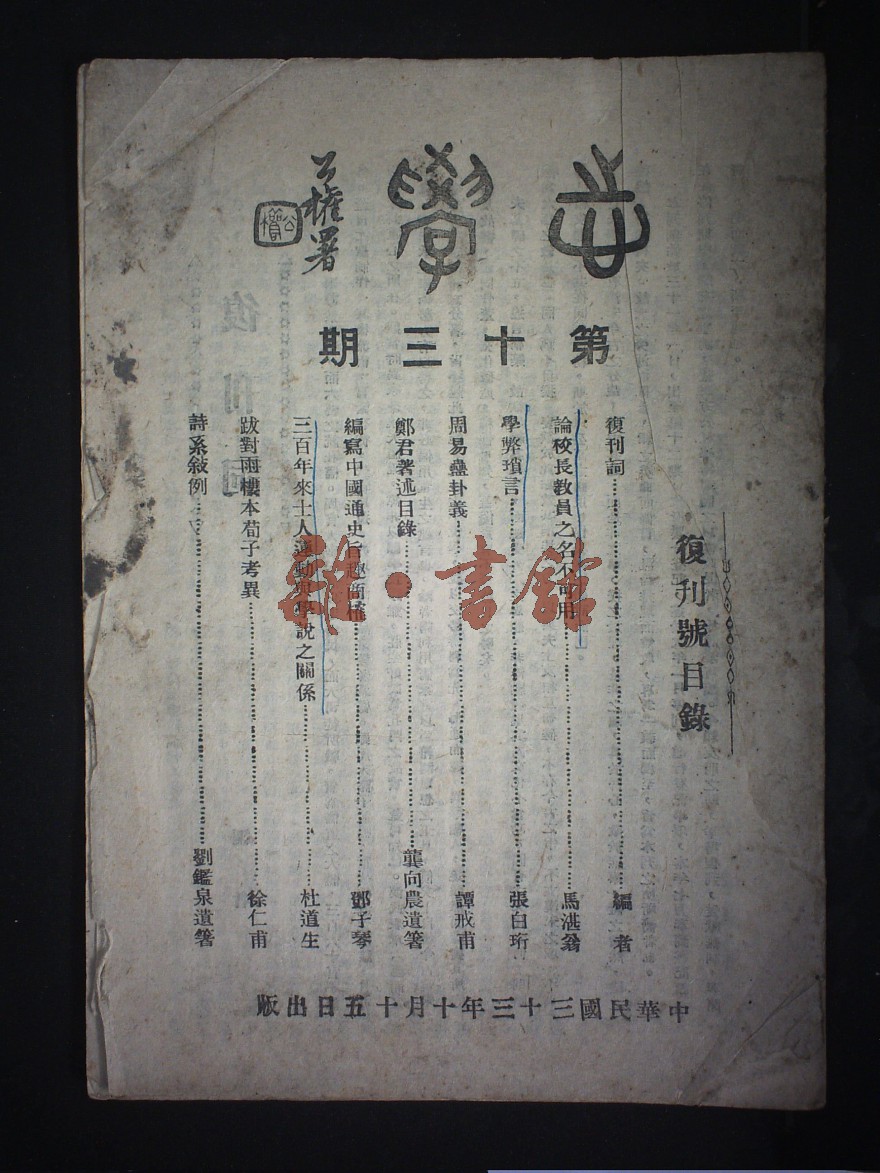 志學
公權署
第十三期
復刊號目錄
復刊詞 編者
論校長教員之名不可用 馬湛翁
學弊瑣言 張白珩
周易蠱卦義 譚戒甫
鄭君著述目錄 龔向農遺箸
編寫中國通史旨趣商榷 鄧子琴
三百年來士人運動與學說之關係 杜道生
跋對雨樓本荀子考異 徐仁甫
詩系敍例 劉鑑泉遺箸
中華民國三十三年十月十五日出版
雜·書館